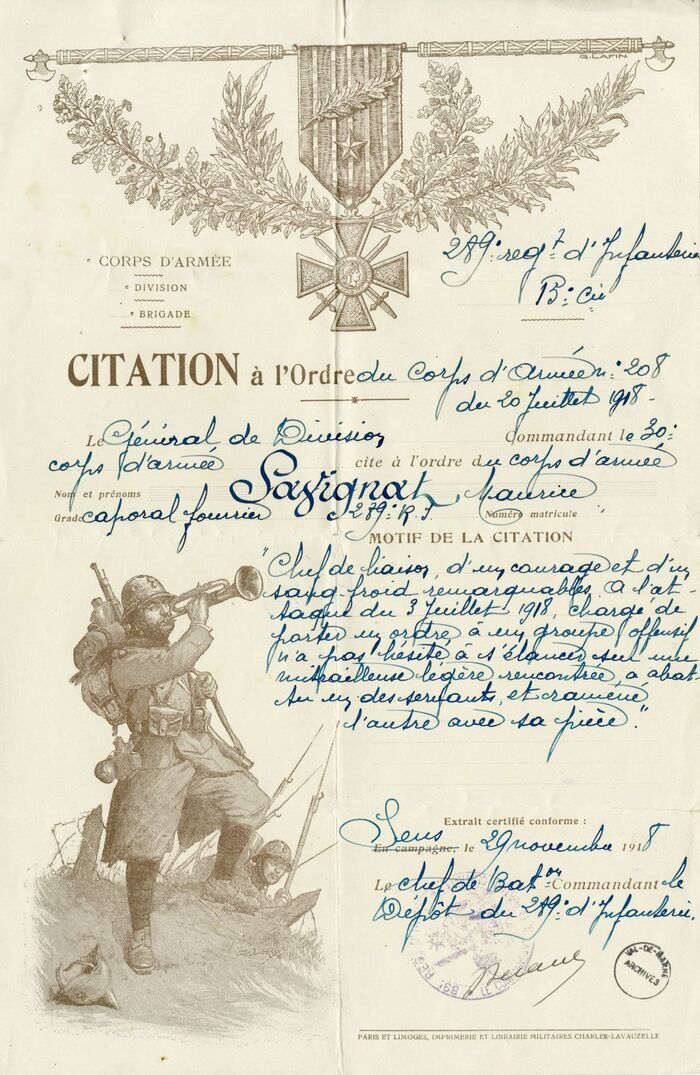 G. LAFIN
289e regt d'Infanterie
CORPS D'ARMÉE
e DIVISION
B: Cie
e BRIGADE
CITATION à l'Ordre du Corps d'Armée n: 208
du 20 Juillet 1918-
Le Général de Division Commandant le 30e
corps d'armée cite à l'ordre du corps d'armée
Nom et prénoms Savignat, Maurice
Grade caporal fourrier 289e R.I. Numéro matricule
MOTIF DE LA CITATION
"Chef de liaison, d'un courage et d'un
sang-froid remarquables. A l'at-
taque du 3 Juillet 1918, chargé de
porter un ordre à un groupe offensif
n'a pas hésité à s'élancer sur une
mitrailleuse légère rencontrée, a abat-
tu un des servants, et ramené
l'autre avec sa pièce."
Extrait certifié conforme :
Sens
En campagne, le 29 novembre 1918
Le chef de Baton Commandant le
Dépôt du 289e d'Infanterie.
89e REG
LE COMMAN
VAL-DE-MARNE
ARCHIVES
PARIS ET LIMOGES, IMPRIMERIE ET LIBRAIRIE MILITAIRES CHARLES-LAVAUZELLE